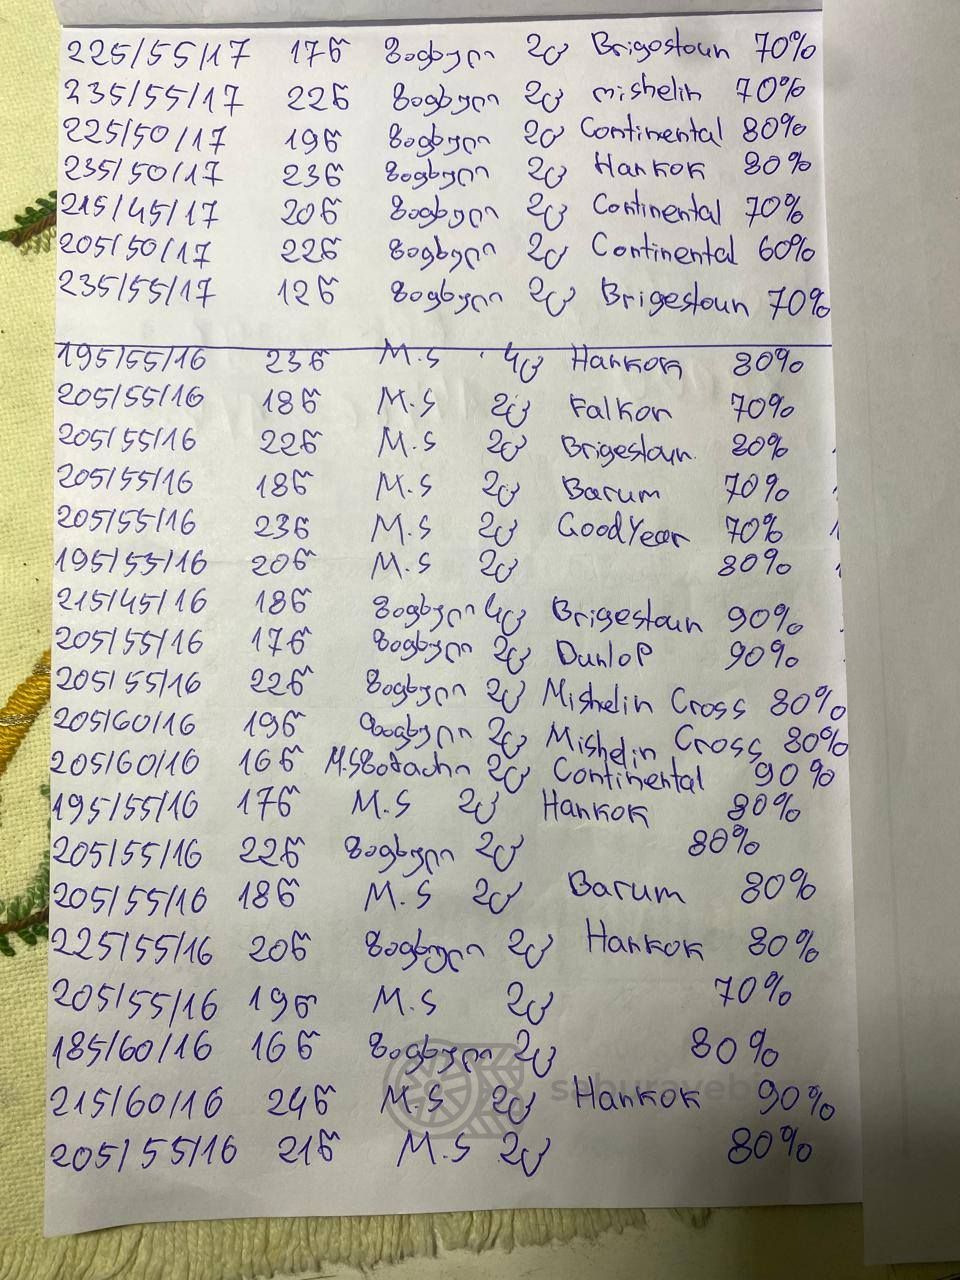 225/55/17 17წ ზაფხული 2ც Brigostoun 70%
235/55/17 22წ ზაფხული 2ც mishelin 70%
225/50/17 19წ ზაფხული 2ც Continental 80%
235/50/17 23წ ზაფხული 2ც Hankok 80%
215/45/17 20წ ზაფხული 2ც Continental 70%
205/50/17 22წ ზაფხული 2ც Continental 60%
235/55/17 12წ ზაფხული 2ც Brigestoun 70%
195/55/16 23წ M.S 4ც Hankok 80%
205/55/16 18წ M.S 2ც Falkon 70%
205/55/16 22წ M.S 2ც Brigestoun 80%
205/55/16 18წ M.S 2ც Barum 70%
205/55/16 23წ M.S 2ც GoodYear 70%
195/55/16 20წ M.S 2ც 80%
215/45/16 18წ ზაფხული 4ც Brigestoun 90%
205/55/16 17წ ზაფხული 2ც Dunlop 90%
205/55/16 22წ ზაფხული 2ც Mishelin Cross 80%
205/60/16 19წ ზაფხული 2ც Mishelin Cross 80%
205/60/16 16წ M.S 2ც Continental 90%
195/55/16 17წ M.S 2ც Hankok 80%
205/55/16 22წ ზაფხული 2ც 80%
205/55/16 18წ M.S 2ც Barum 80%
225/55/16 20წ ზაფხული 2ც Hankok 80%
205/55/16 19წ M.S 2ც 70%
185/60/16 16წ ზაფხული 2ც 80%
215/60/16 24წ M.S 2ც Hankok 90%
205/55/16 21წ M.S 2ც 80%